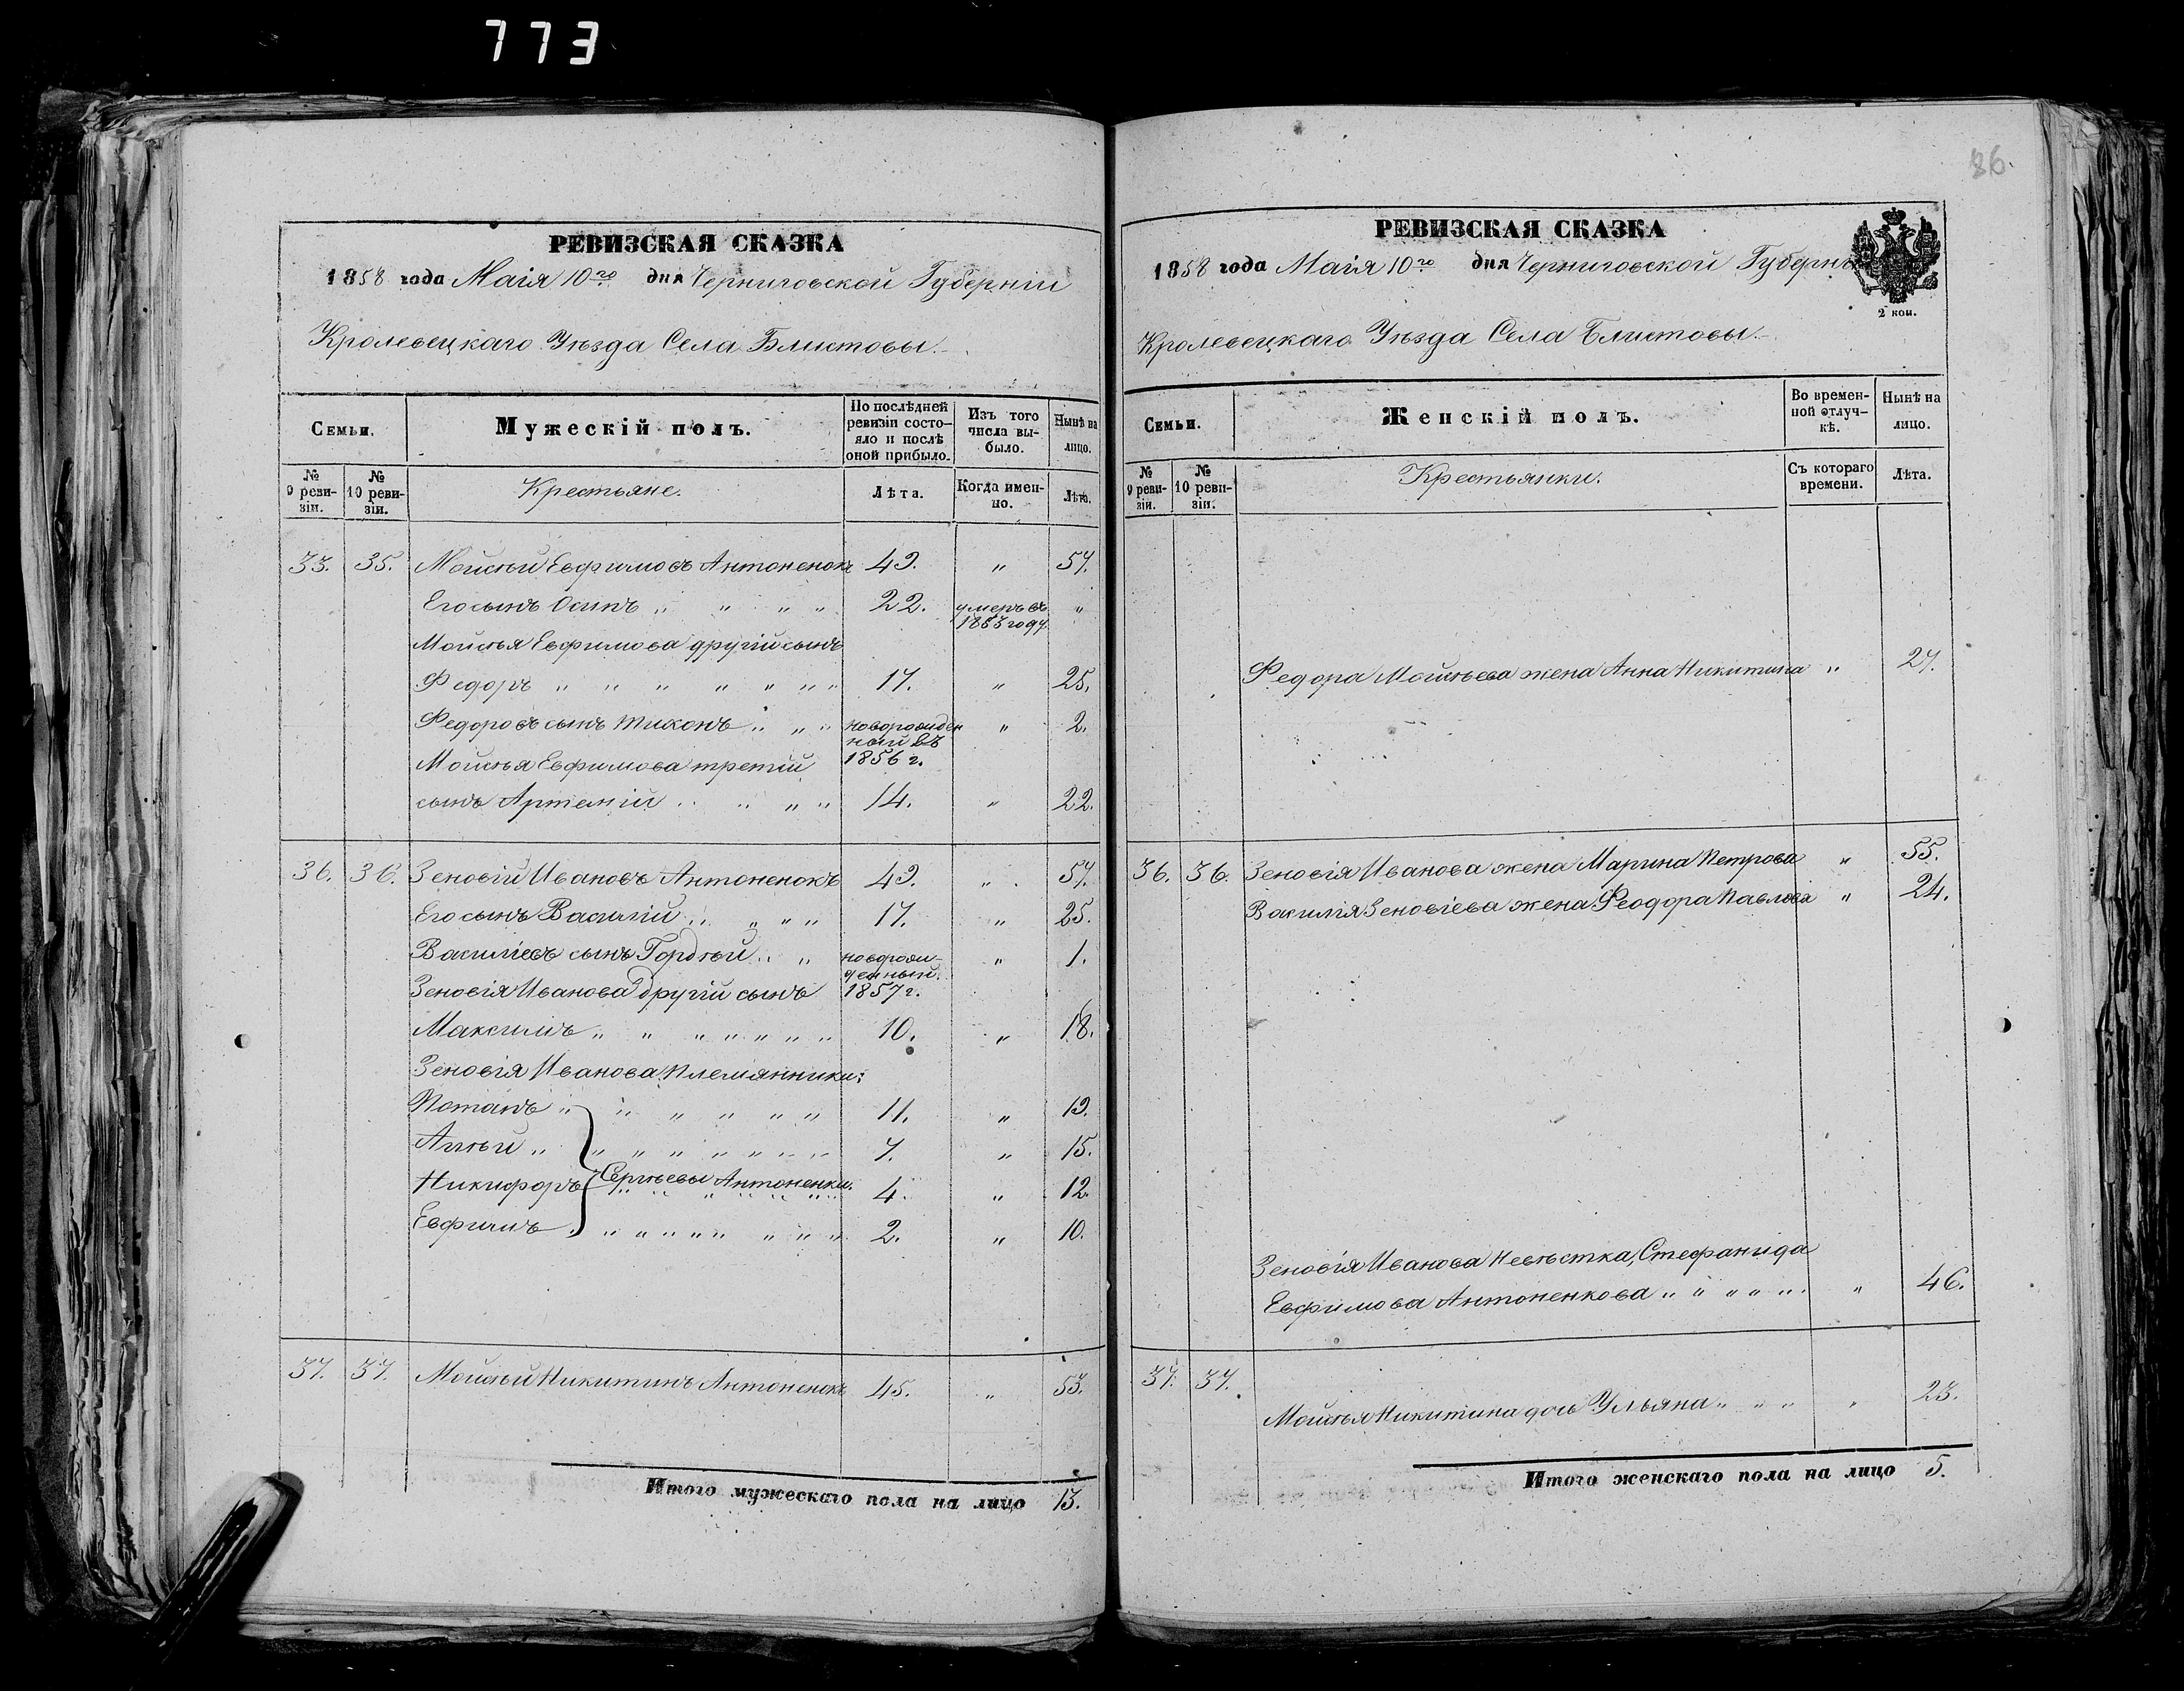 773
86.
РЕВИЗСКАЯ СКАЗКА
1858 года Маія 10го дня Черниговской Губерніи
Кролевецкаго Уѣзда Села Блистовы.
Семьи.
Мужескій полъ.
По послѣдней ревизіи состо-яло и послѣ оной прибыло.
Изъ того числа вы-было.
Нынѣ на лицо.
№ 9 реви-зіи.
№ 10 реви-зіи.
Крестьяне.
Лѣта.
Когда имен-но.
Лѣта.
33. 35. Мойсѣй Евфимовъ Антоненокъ 49. " 57.
Его сынъ Осипъ " " " " 22. умеръ въ 1853 году "
Мойсѣя Евфимова другій сынъ
Федоръ " " " " " " " 17. " 25.
Федоровъ сынъ Тихонъ " " " новорожден ный въ 1856 г. " 2.
Мойсѣя Евфимова третій
сынъ Артемій " " " " 14. " 22.
36. 36. Зеновій Ивановъ Антоненокъ 49. " 57.
Его сынъ Василій " " " " 17. " 25.
Василіевъ сынъ Гордѣй " " новорож-денный 1857 г. " 1.
Зеновія Иванова другій сынъ
Максимъ " " " " " " " 10. " 18.
Зеновія Иванова племянники:
Потапъ " " " " " " 11. " 19.
Аггѣй " " " " " " " " " 7. " 15.
Никифоръ Сергѣевы Антоненки. 4. " 12.
Евфимъ " " " " " " " " " 2. " 10.
37. 37. Мойсѣй Никитинъ Антоненокъ 45. " 53.
Итого мужескаго пола на лицо 13.
РЕВИЗСКАЯ СКАЗКА
1858 года Маія 10го дня Черниговской Губерніи
2 коп.
Кролевецкаго Уѣзда Села Блистовы.
Семьи.
Женскій полъ.
Во времен-ной отлуч-кѣ.
Нынѣ на лицо.
№ 9 реви-зіи.
№ 10 реви-зіи.
Крестьянки.
Съ котораго времени.
Лѣта.
Федора Мойсѣева жена Анна Никитина " 27.
36. 36. Зеновія Иванова жена Марина Петрова " 55.
Василія Зеновіева жена Феодора Павлова " 24.
Зеновія Иванова невѣстка, Стефанида
Евфимова Антоненкова " " " " " " 46.
37. 37. Мойсѣя Никитина дочь Ульяна " " " " 23.
Итого женскаго пола на лицо 5.